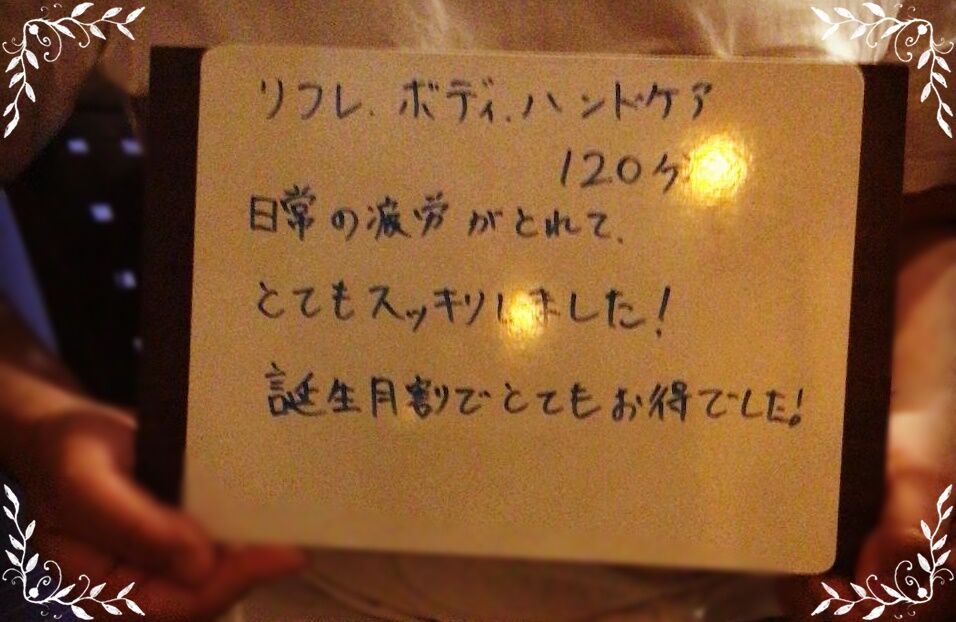 リフレ.ボディ.ハンドケア
120分
日常の疲労がとれて、
とてもスッキリしました!
誕生月割でとてもお得でした!